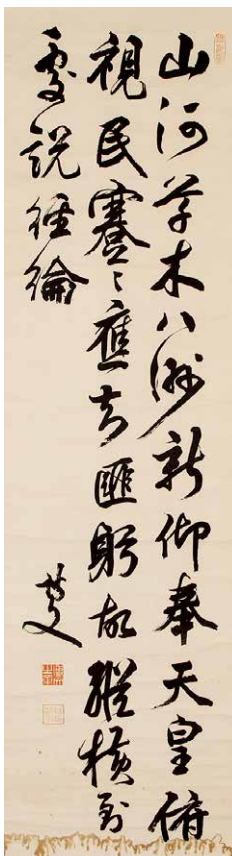 山河草木八洲新仰奉天皇俯
視民蹇々應知匪躬故縱横到
處説經綸
博文